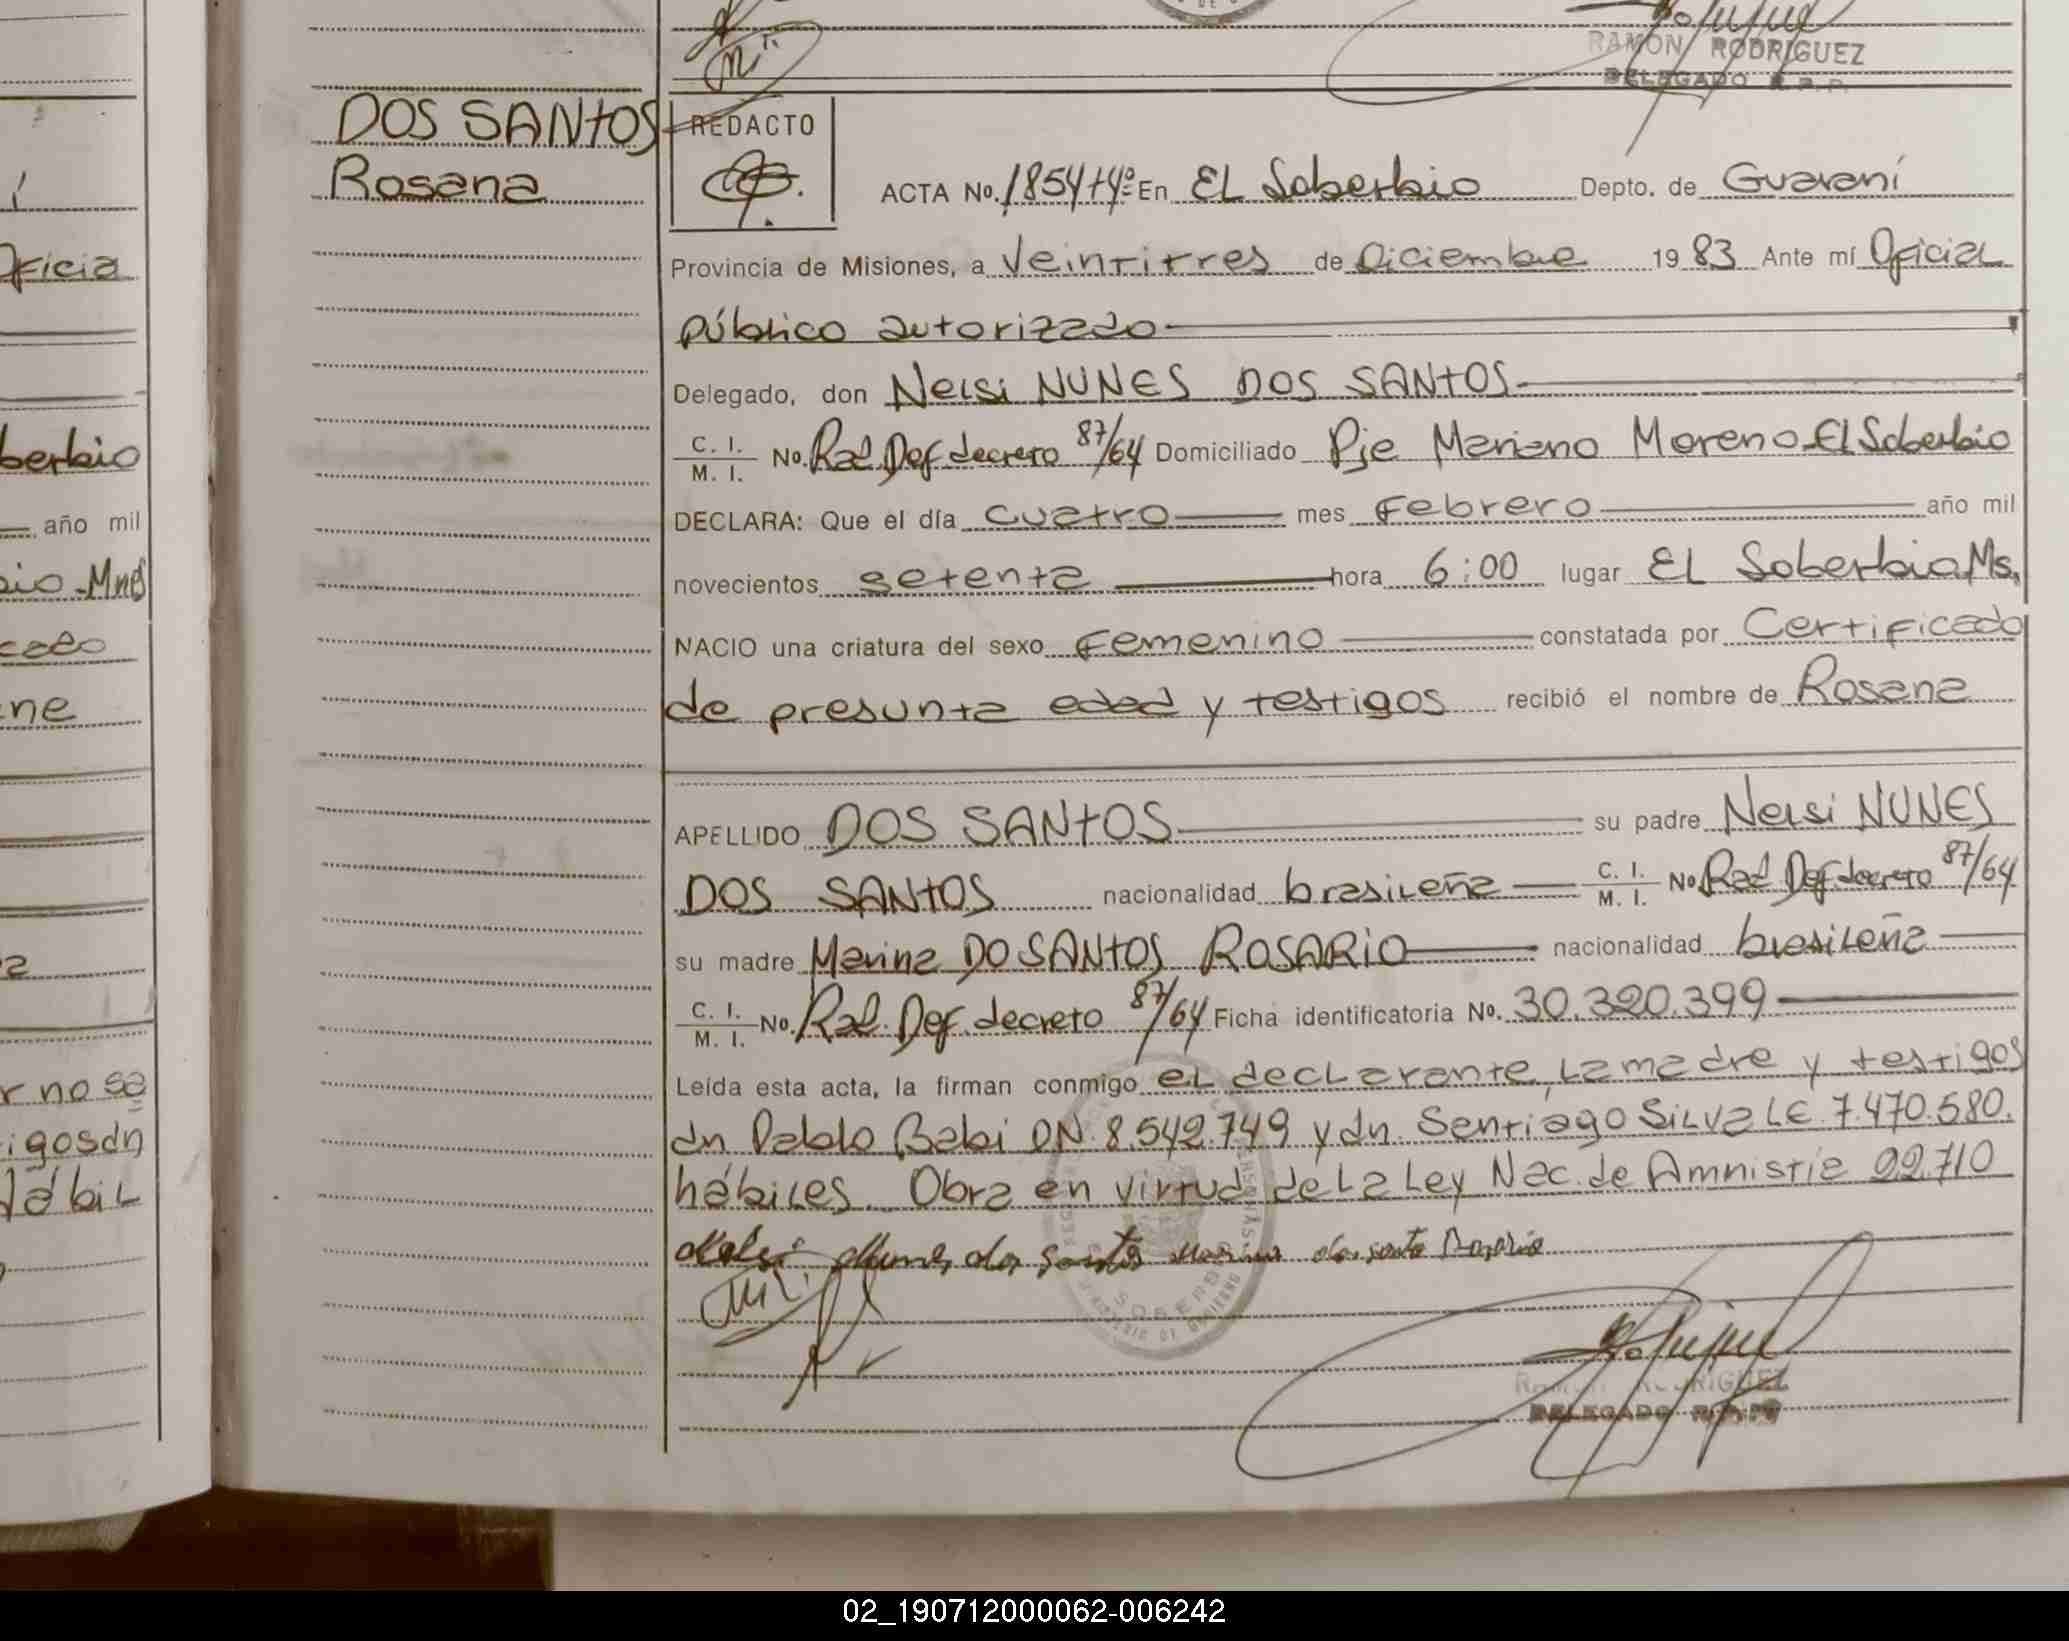 RAMON RODRIGUEZ
DELEGADO R.P.P.
DOS SANTOS
Rosana
REDACTO
ACTA No. 1854 t4º En EL Soberbio Depto. de Guaraní
Provincia de Misiones, a Veintitres de Diciembre 1983 Ante mí Oficial
público autorizado
Delegado, don Nelsi NUNES DOS SANTOS
C. I. / M. I. No. Rad. Def. decreto 87/64 Domiciliado Pje Mariano Moreno-El Soberbio
DECLARA: Que el día cuatro mes Febrero año mil
novecientos setenta hora 6:00 lugar EL Soberbio Ms.
NACIO una criatura del sexo Femenino constatada por Certificado
de presunta edad y testigos recibió el nombre de Rosana
APELLIDO DOS SANTOS su padre Nelsi NUNES
DOS SANTOS nacionalidad brasileña C. I. / M. I. No. Rad Def. decreto 87/64
su madre Marina DO SANTOS ROSARIO nacionalidad brasileña
C. I. / M. I. No. Rad. Def. decreto 87/64 Ficha identificatoria No. 30.320.399
Leída esta acta, la firman conmigo el declarante, la madre y testigos
dn Pablo Babi DN. 8.542.749 y dn Santiago Silva LE 7.470.580.
hábiles. Obra en virtud de la Ley Nac. de Amnistía 22.710
Nelsi Nunes dos santos Marina do santo Rosario
RAMON RODRIGUEZ
DELEGADO R.P.P.
oficia
berbio
año mil
bio-Mns
cado
ne
r no sa
igos dn
hábil
02_190712000062-006242